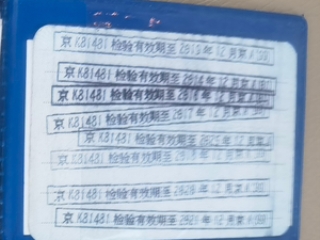 京 K81481 检验有效期至 2015 年 12 月京 A
京 K81481 检验有效期至 2016 年 12 月京 A
京 K81481 检验有效期至 2016 年 12 月京 A
京 K81481 检验有效期至 2017 年 12 月京 A
京 K81481 检验有效期至 年 12 月京 A
京 K81481 检验有效期至 年 12 月京 A
京 K81481 检验有效期至 2020 年 12 月京 A
京 K81481 检验有效期至 2021 年 12 月京 A